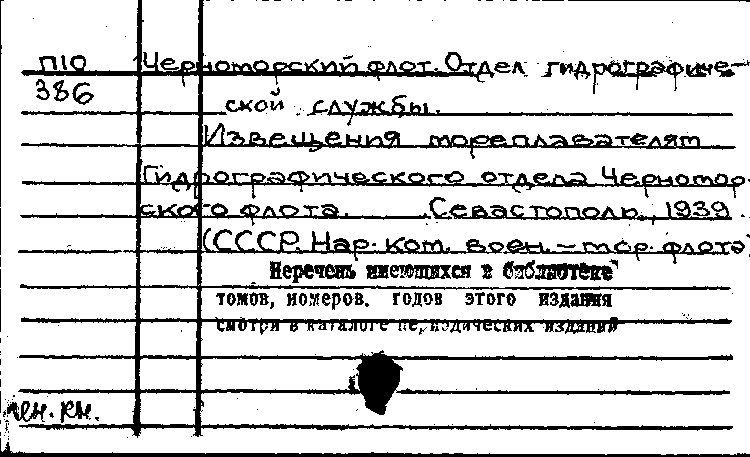 П10 Черноморский флот. Отдел гидрографиче-
386 ской службы.
Извещения мореплавателям
Гидрографического отдела Черномор-
ского флота. Севастополь, 1939.
(СССР. Нар. ком. воен.-мор. флота)
Перечень имеющихся в библиотеке
томов, номеров, годов этого издания
смотри в каталоге периодических изданий
кн.